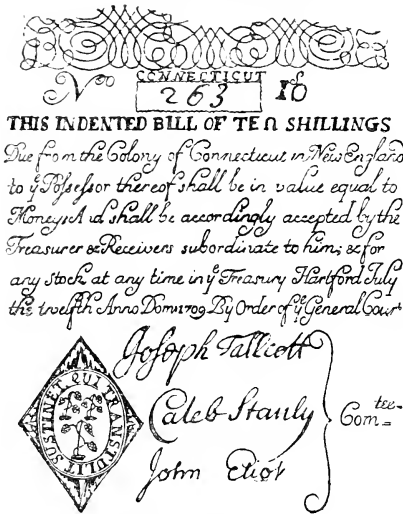 CONNECTICUT
No 263 10s
THIS INDENTED BILL OF TEN SHILLINGS
Due from the Colony of Connecticut in New England
to ye Possessor thereof shall be in value equal to
Money & And shall be accordingly accepted by the
Treasurer & Receivers subordinate to him; & for
any stock at any time in ye Treasury Hartford July
the twelfth Anno Dom: 1709 By Order of ye General Court
Joseph Tallcott
Caleb Stanly
Com-tee
John Eliot
SUSTINET QUI TRANSTULIT